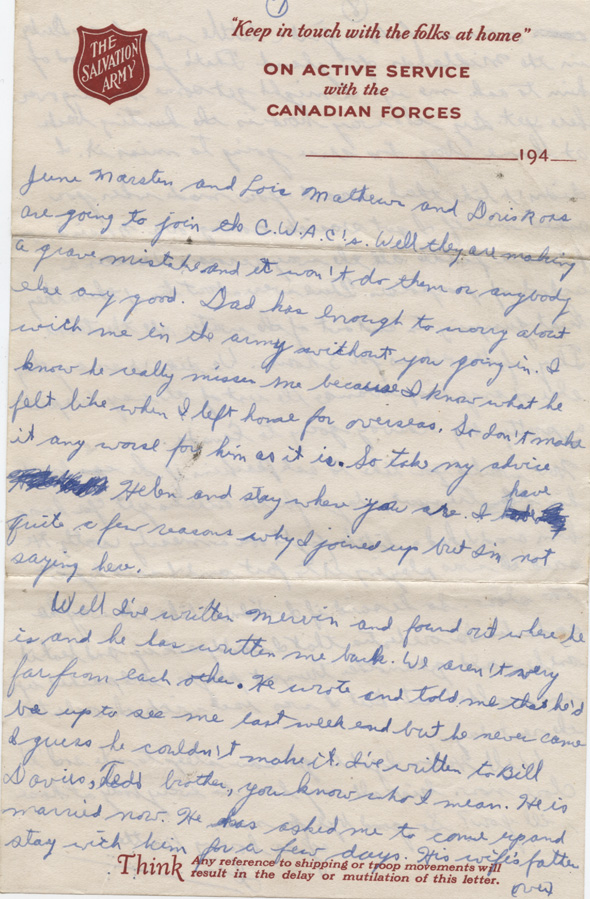 1
THE
SALVATION
ARMY
"Keep in touch with the folks at home"
ON ACTIVE SERVICE
with the
CANADIAN FORCES
194
June Marsten and Lois Mathews and Doris Ross
are going to join the C.W.A.C's. Well they are making
a grave mistake and it won't do them or anybody
else any good. Dad has enough to worry about
with me in the army without you going in. I
know he really misses me because I know what he
felt like when I left home for overseas. So don't make
it any worse for him as it is. So take my advice
Helen and stay where you are. I have
quite a few reasons why I joined up but I'm not
saying here.
Well I've written Mervin and found out where he
is and he has written me back. We aren't very
far from each other. He wrote and told me that he'd
be up to see me last week end but he never came
I guess he couldn't make it. I've written to Bill
Davies, Ted's brother, you know who I mean. He is
married now. He has asked me to come up and
stay with him for a few days. His wife's father
Think Any reference to shipping or troop movements will
result in the delay or mutilation of this letter.
over